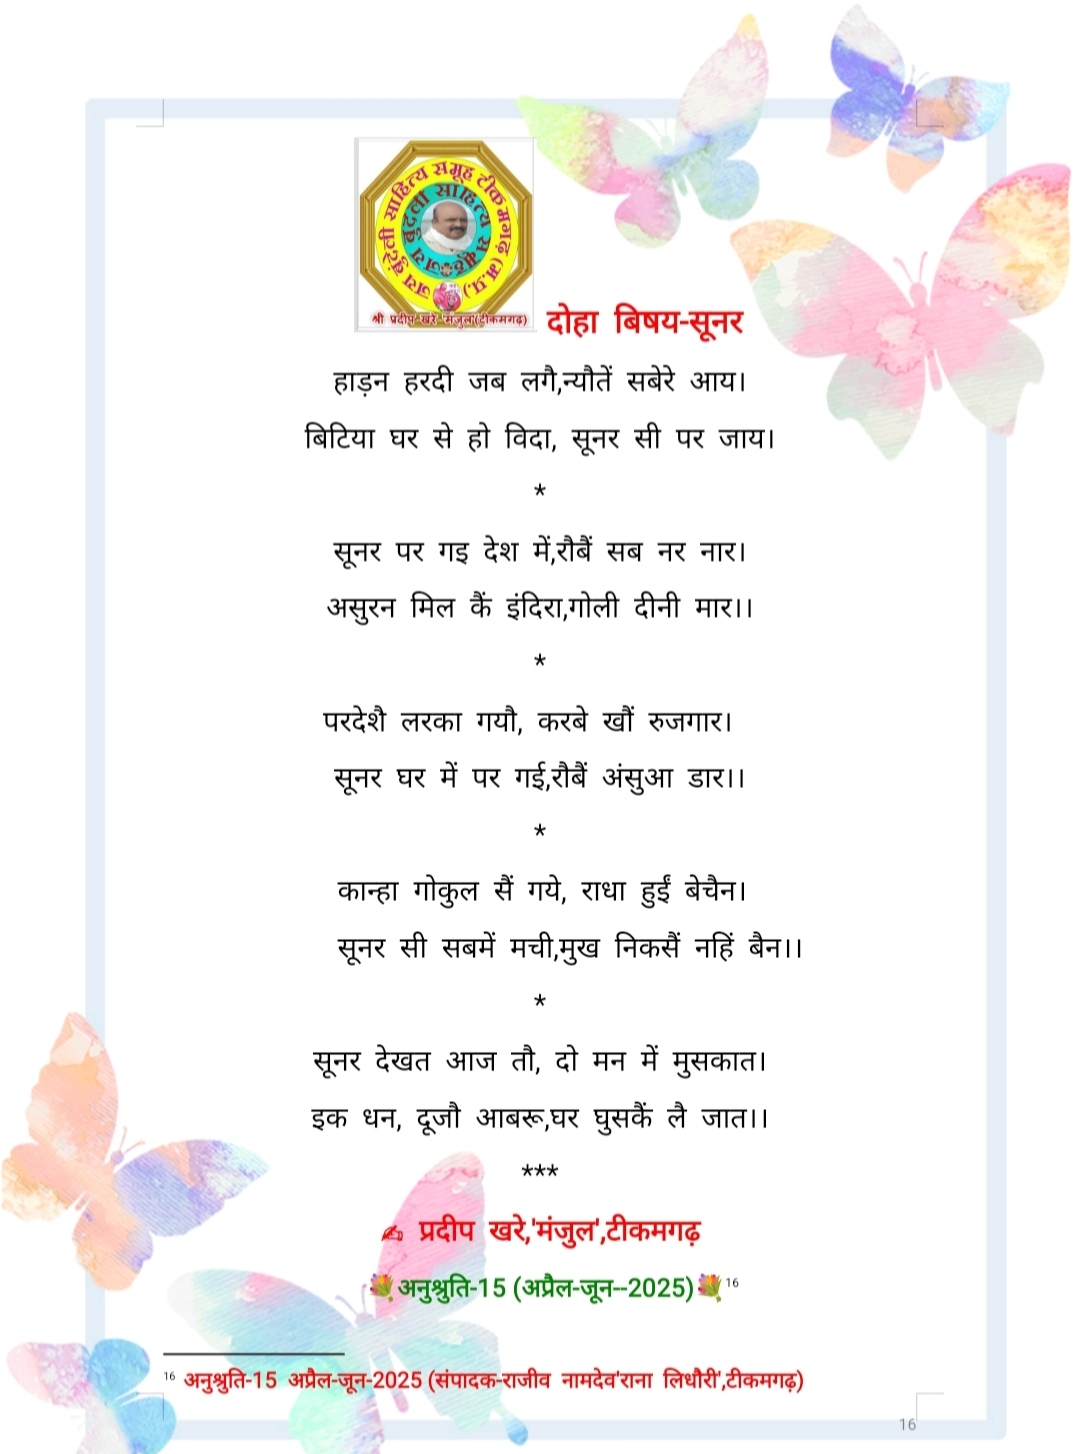 जय बुंदेली साहित्य समूह टीकमगढ़ (म.प्र.)
जय बुंदेली साहित्य समूह
श्री प्रदीप खरे 'मंजुल'(टीकमगढ़)
दोहा बिषय-सूनर
हाड़न हरदी जब लगै,न्यौतें सबेरे आय।
बिटिया घर से हो विदा, सूनर सी पर जाय।
*
सूनर पर गइ देश में,रौबैं सब नर नार।
असुरन मिल कैं इंदिरा,गोली दीनी मार।।
*
परदेशै लरका गयौ, करबे खौं रुजगार।
सूनर घर में पर गई,रौबैं अंसुआ डार।।
*
कान्हा गोकुल सैं गये, राधा हुईं बेचैन।
सूनर सी सबमें मची,मुख निकसैं नहिं बैन।।
*
सूनर देखत आज तौ, दो मन में मुसकात।
इक धन, दूजौ आबरू,घर घुसकैं लै जात।।
***
✍️ प्रदीप खरे,'मंजुल',टीकमगढ़
💐अनुश्रुति-15 (अप्रैल-जून--2025)💐16
16 अनुश्रुति-15 अप्रैल-जून-2025 (संपादक-राजीव नामदेव'राना लिधौरी',टीकमगढ़)
16